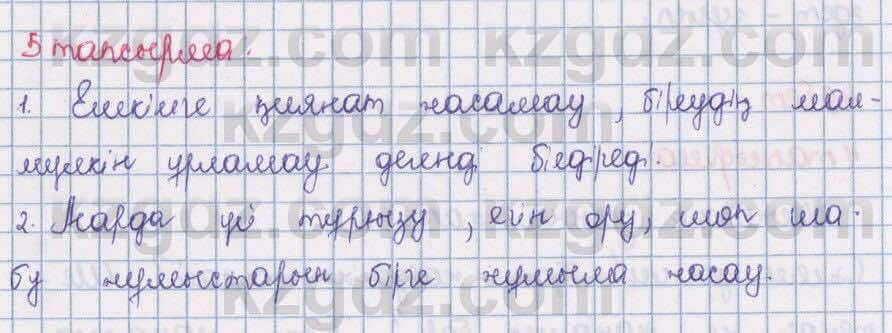 5 тапсырма.
1. Ешкімге қиянат жасамау, біреудің мал-
мүлкін ұрламау дегенді білдіреді.
2. Жарда үй тұрғызу, егін ору, шөп ша-
бу жұмыстарын бірге жұмыла жасау.
kzgdz.com